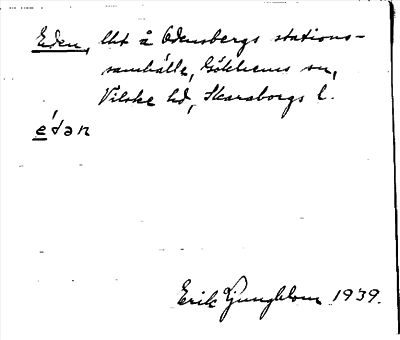 Eden, lht å Odensbergs stations-
samhälle, Gökhems sn,
Vilske hd, Skaraborgs l.
e´dən
Erik Ljungblom 1939.